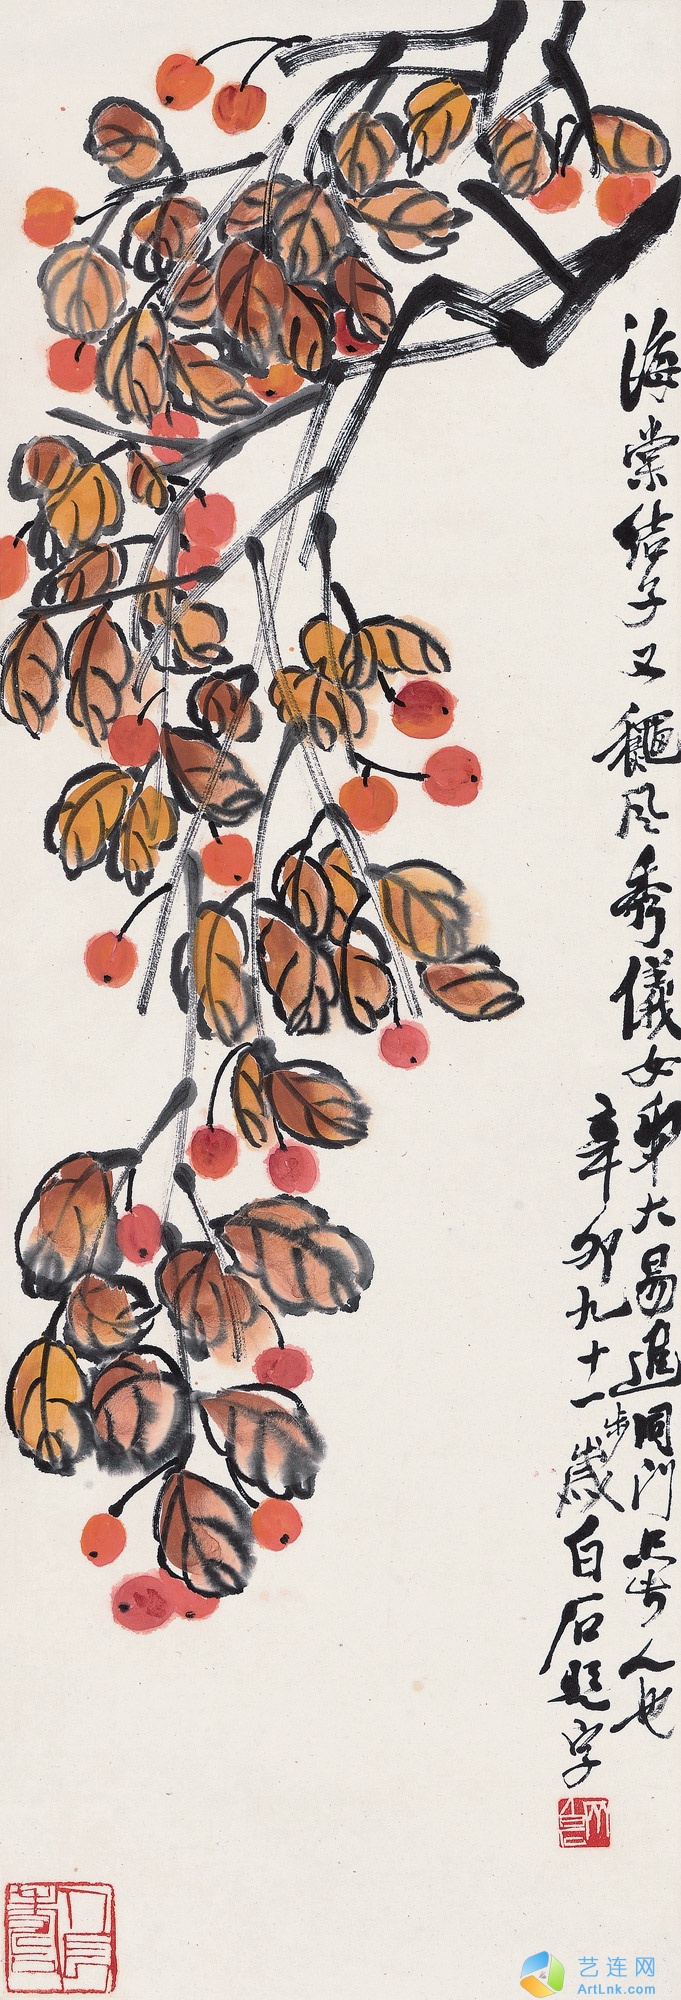 海棠结子又龝风秀儀女弟大易進同门
辛卯九十一岁白石题字
艺连网
ArtLnk.com